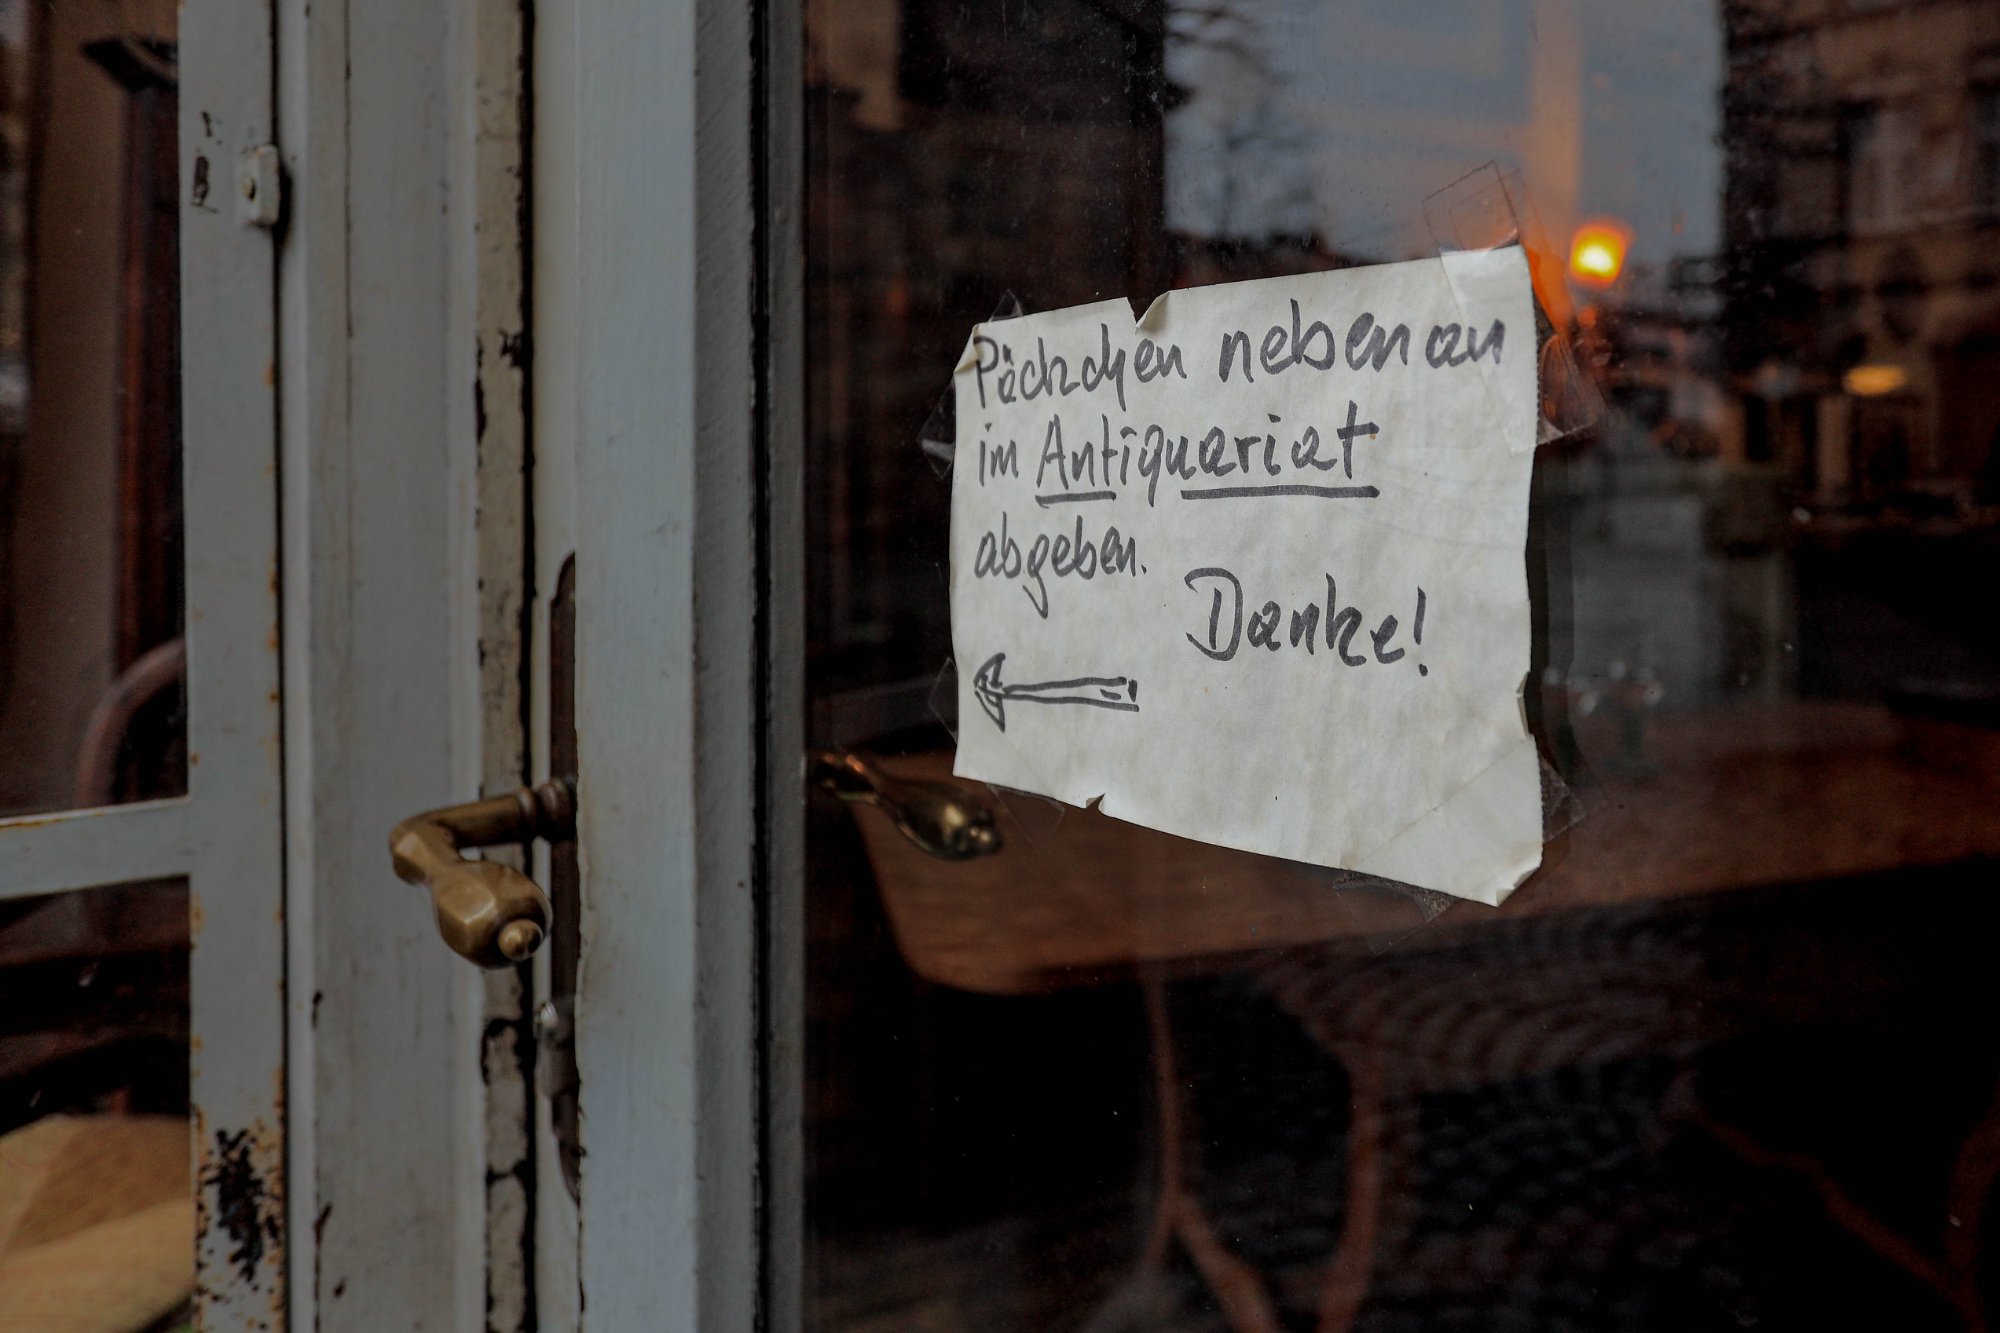 Päckchen nebenan
im Antiquariat
abgeben.
Danke!